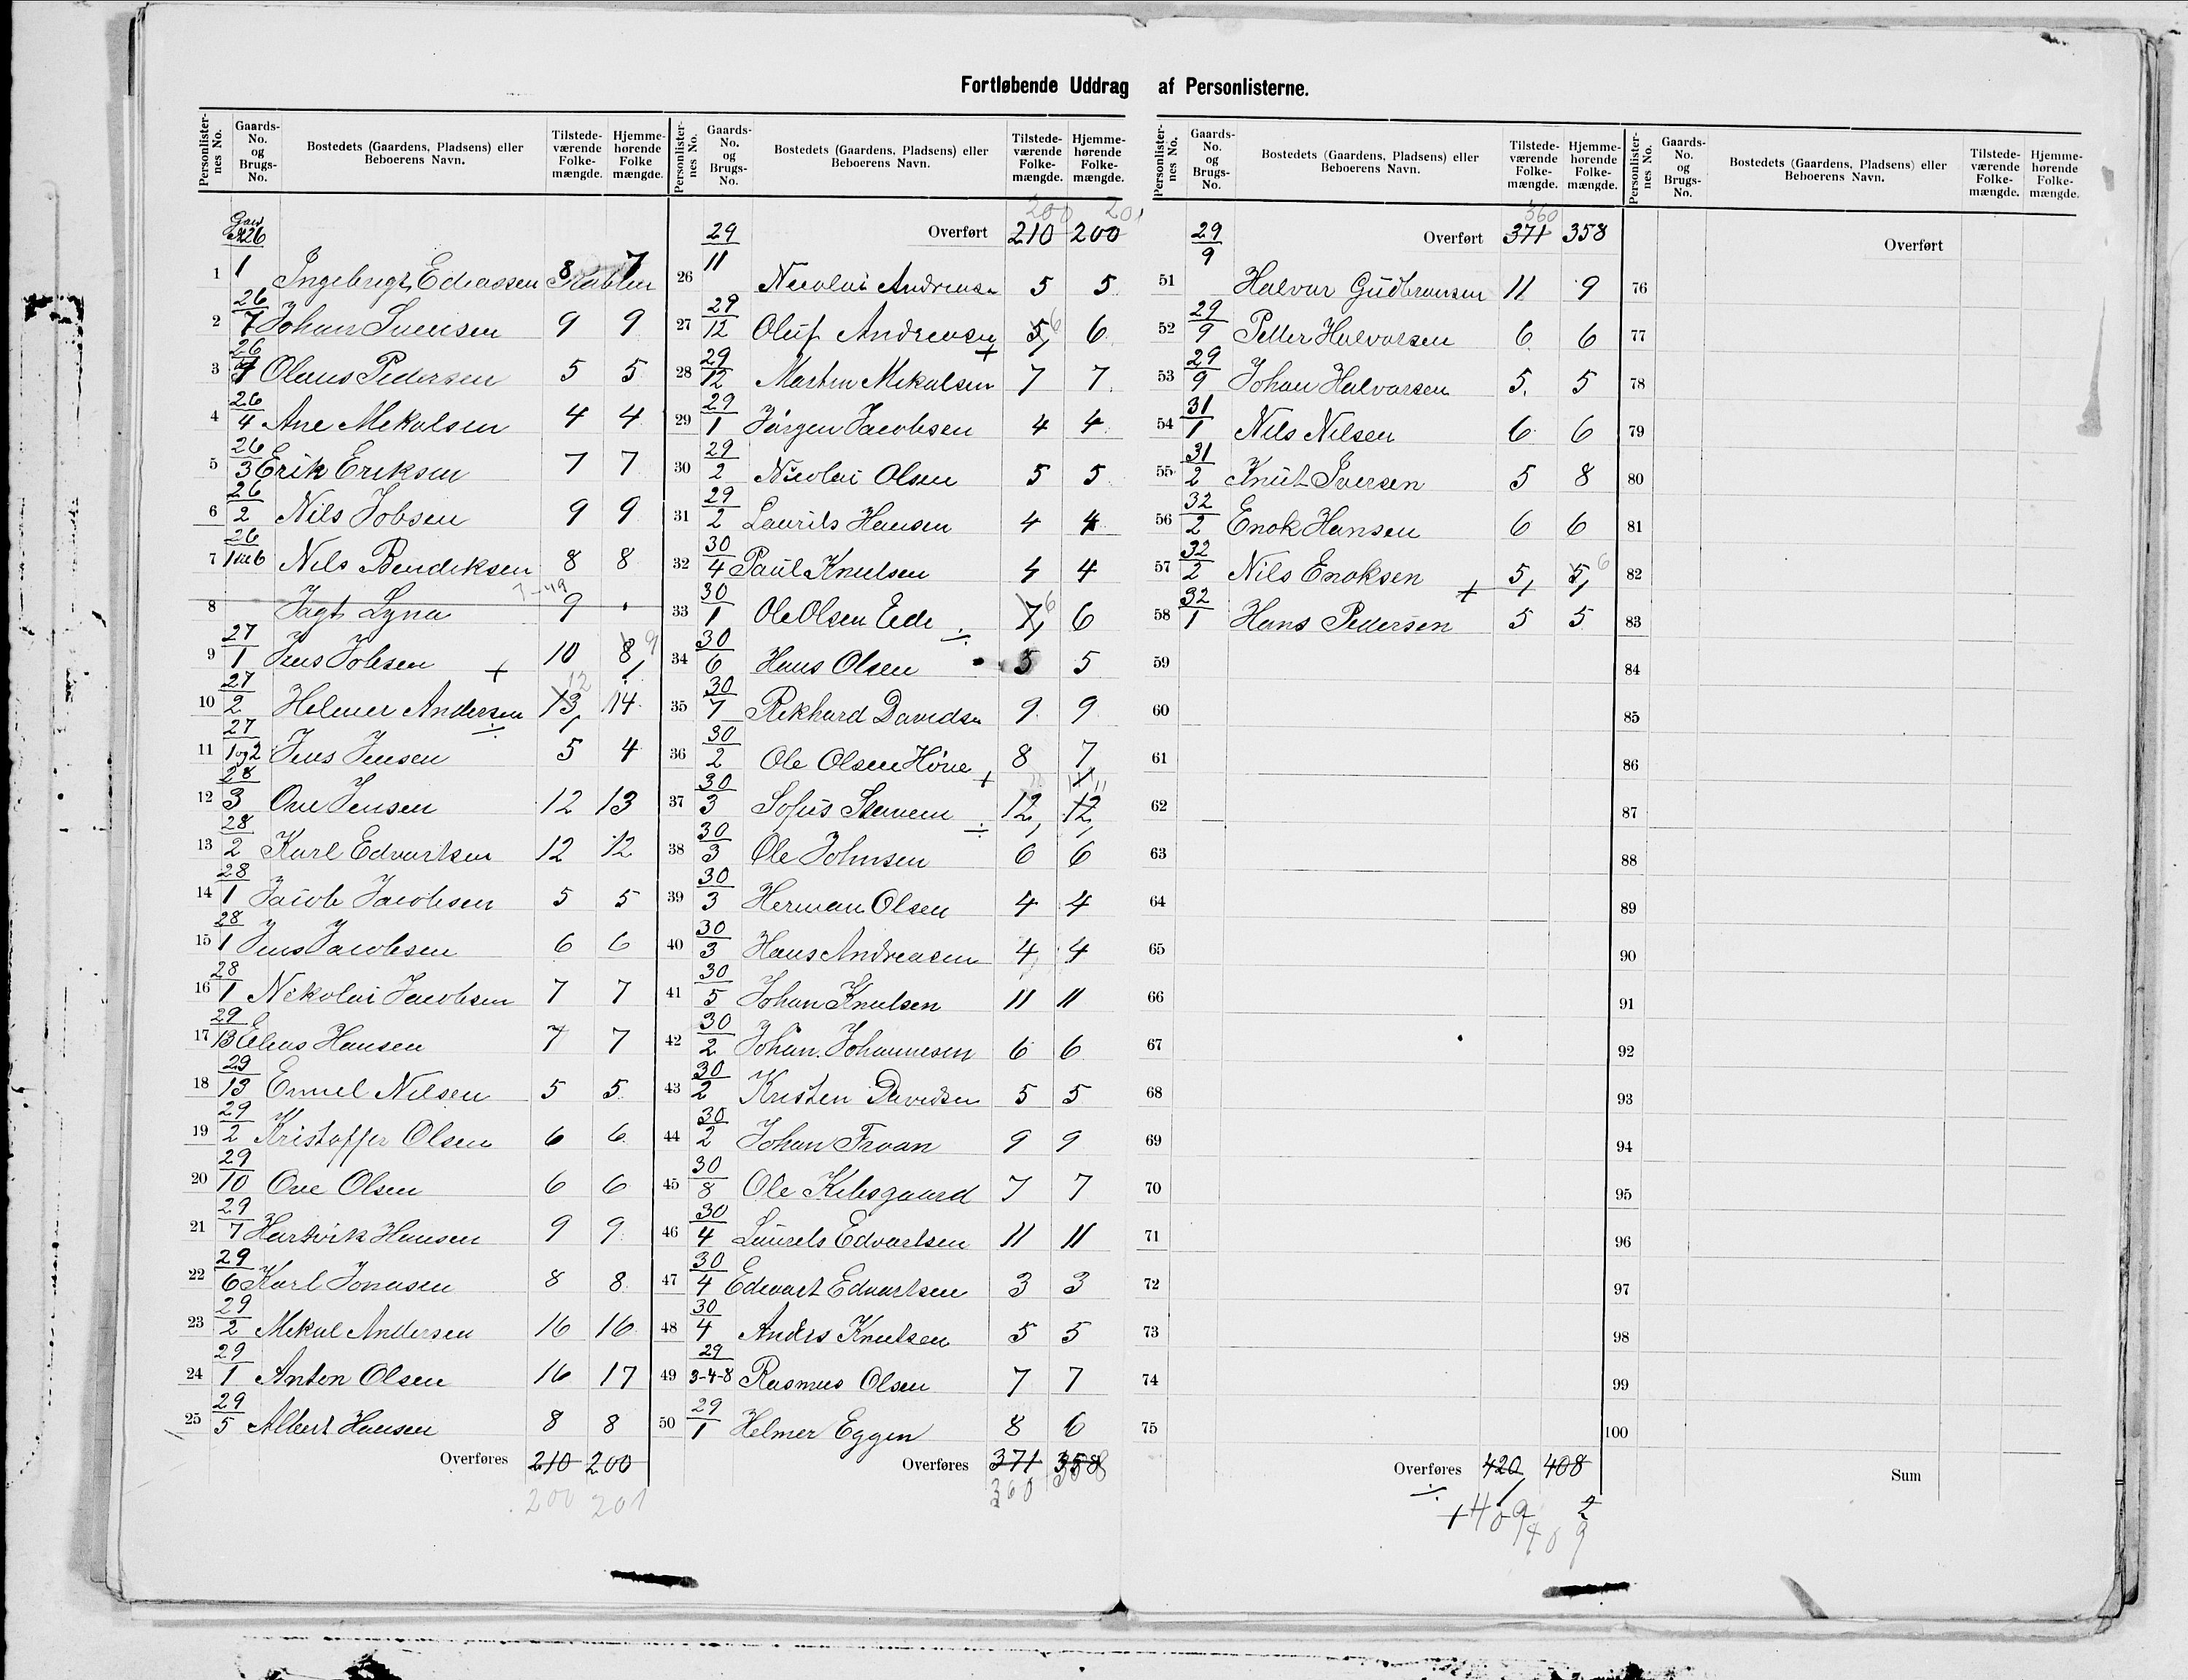 Fortløbende Uddrag af Personlisterne.
Personlisternes No. Gaards-No. og Brugs-No. Bostedets (Gaardens, Pladsens) eller Beboerens Navn. Tilstedeværende Folkemængde. Hjemmehørende Folkemængde.
26
1 1 Ingebrigt 8 7
2 26/7 Johan 9 9
3 26 Olaus Pedersen 5 5
4 26/4 Ane Mekalsen 4 4
5 26/3 Erik Eriksen 7 7
6 26/2 Nils Jobsen 9 9
7 26 Nils Bendiksen 8 8
8 Jagt Lyna 9
9 27/1 Jens Jobsen + 10 8 9
10 27/2 Helmer Andersen 13 12 14
11 27/1og2 Jens Jensen 5 4
12 28/3 Ove Jensen 12 13
13 28/2 Karl Edvartsen 12 12
14 28/1 Jacob Jacobsen 5 5
15 28/1 Jens Jacobsen 6 6
16 28/1 Nikolai Jacobsen 7 7
17 29/13 Elias Hansen 7 7
18 29/13 Emil Nilsen 5 5
19 29/2 Kristoffer Olsen 6 6
20 29/10 Ove Olsen 6 6
21 29/7 Hartvik Hansen 9 9
22 29/6 Karl Jonasen 8 8
23 29/2 Mekal Andersen 16 16
24 29/1 Anton Olsen 16 17
25 29/5 Albert Hansen 8 8
Overføres 210 200
200 201
Personlisternes No. Gaards-No. og Brugs-No. Bostedets (Gaardens, Pladsens) eller Beboerens Navn. Tilstedeværende Folkemængde. Hjemmehørende Folkemængde.
200 201
Overført 210 200
26 29/11 Nicolai Andreasen 5 5
27 29/12 Oluf Andreasen + 5 6 6
28 29/12 Martin Mekalsen 7 7
29 29/1 Jørgen Jacobsen 4 4
30 29/2 Nicolai Olsen 5 5
31 29/2 Laurits Hansen 4 4
32 30/4 Paul Knutsen 4 4
33 30/1 Ole Olsen Eide 7 6 6
34 30/6 Hans Olsen 5 5
35 30/7 Rikhard Davidsen 9 9
36 30/2 Ole Olsen + 8 7
37 30/3 Sofus 12 12 11
38 30/3 Ole Johnsen 6 6
39 30/3 Herman Olsen 4 4
40 30/3 Hans Andreasen 4 4
41 30/5 Johan Knutsen 11 11
42 30/2 Johan Johannesen 6 6
43 30/2 Kristen Davidsen 5 5
44 30/2 Johan Froan 9 9
45 30/8 Ole Kilesgaard 7 7
46 30/4 Laurits Edvartsen 11 11
47 30/4 Edvart Edvartsen 3 3
48 30/4 Anders Knutsen 5 5
49 29/3-4-8 Rasmus Olsen 7 7
50 29/1 Helmer Eggen 8 6
Overføres 371 358
360 358
Personlisternes No. Gaards-No. og Brugs-No. Bostedets (Gaardens, Pladsens) eller Beboerens Navn. Tilstedeværende Folkemængde. Hjemmehørende Folkemængde.
360
Overført 371 358
51 29/9 Halvar Gudbransen 11 9
52 29/9 Petter Halvorsen 6 6
53 29/9 Johan Halvarsen 5 5
54 31/1 Nils Nilsen 6 6
55 31/2 Knut Iversen 5 8
56 32/2 Enok Hansen 6 6
57 32/2 Nils Enoksen + 5 5 6
58 32/1 Hans Pedersen 5 5
59
60
61
62
63
64
65
66
67
68
69
70
71
72
73
74
75
Overføres 420 408
409 2
409
Personlisternes No. Gaards-No. og Brugs-No. Bostedets (Gaardens, Pladsens) eller Beboerens Navn. Tilstedeværende Folkemængde. Hjemmehørende Folkemængde.
Overført
76
77
78
79
80
81
82
83
84
85
86
87
88
89
90
91
92
93
94
95
96
97
98
99
100
Sum